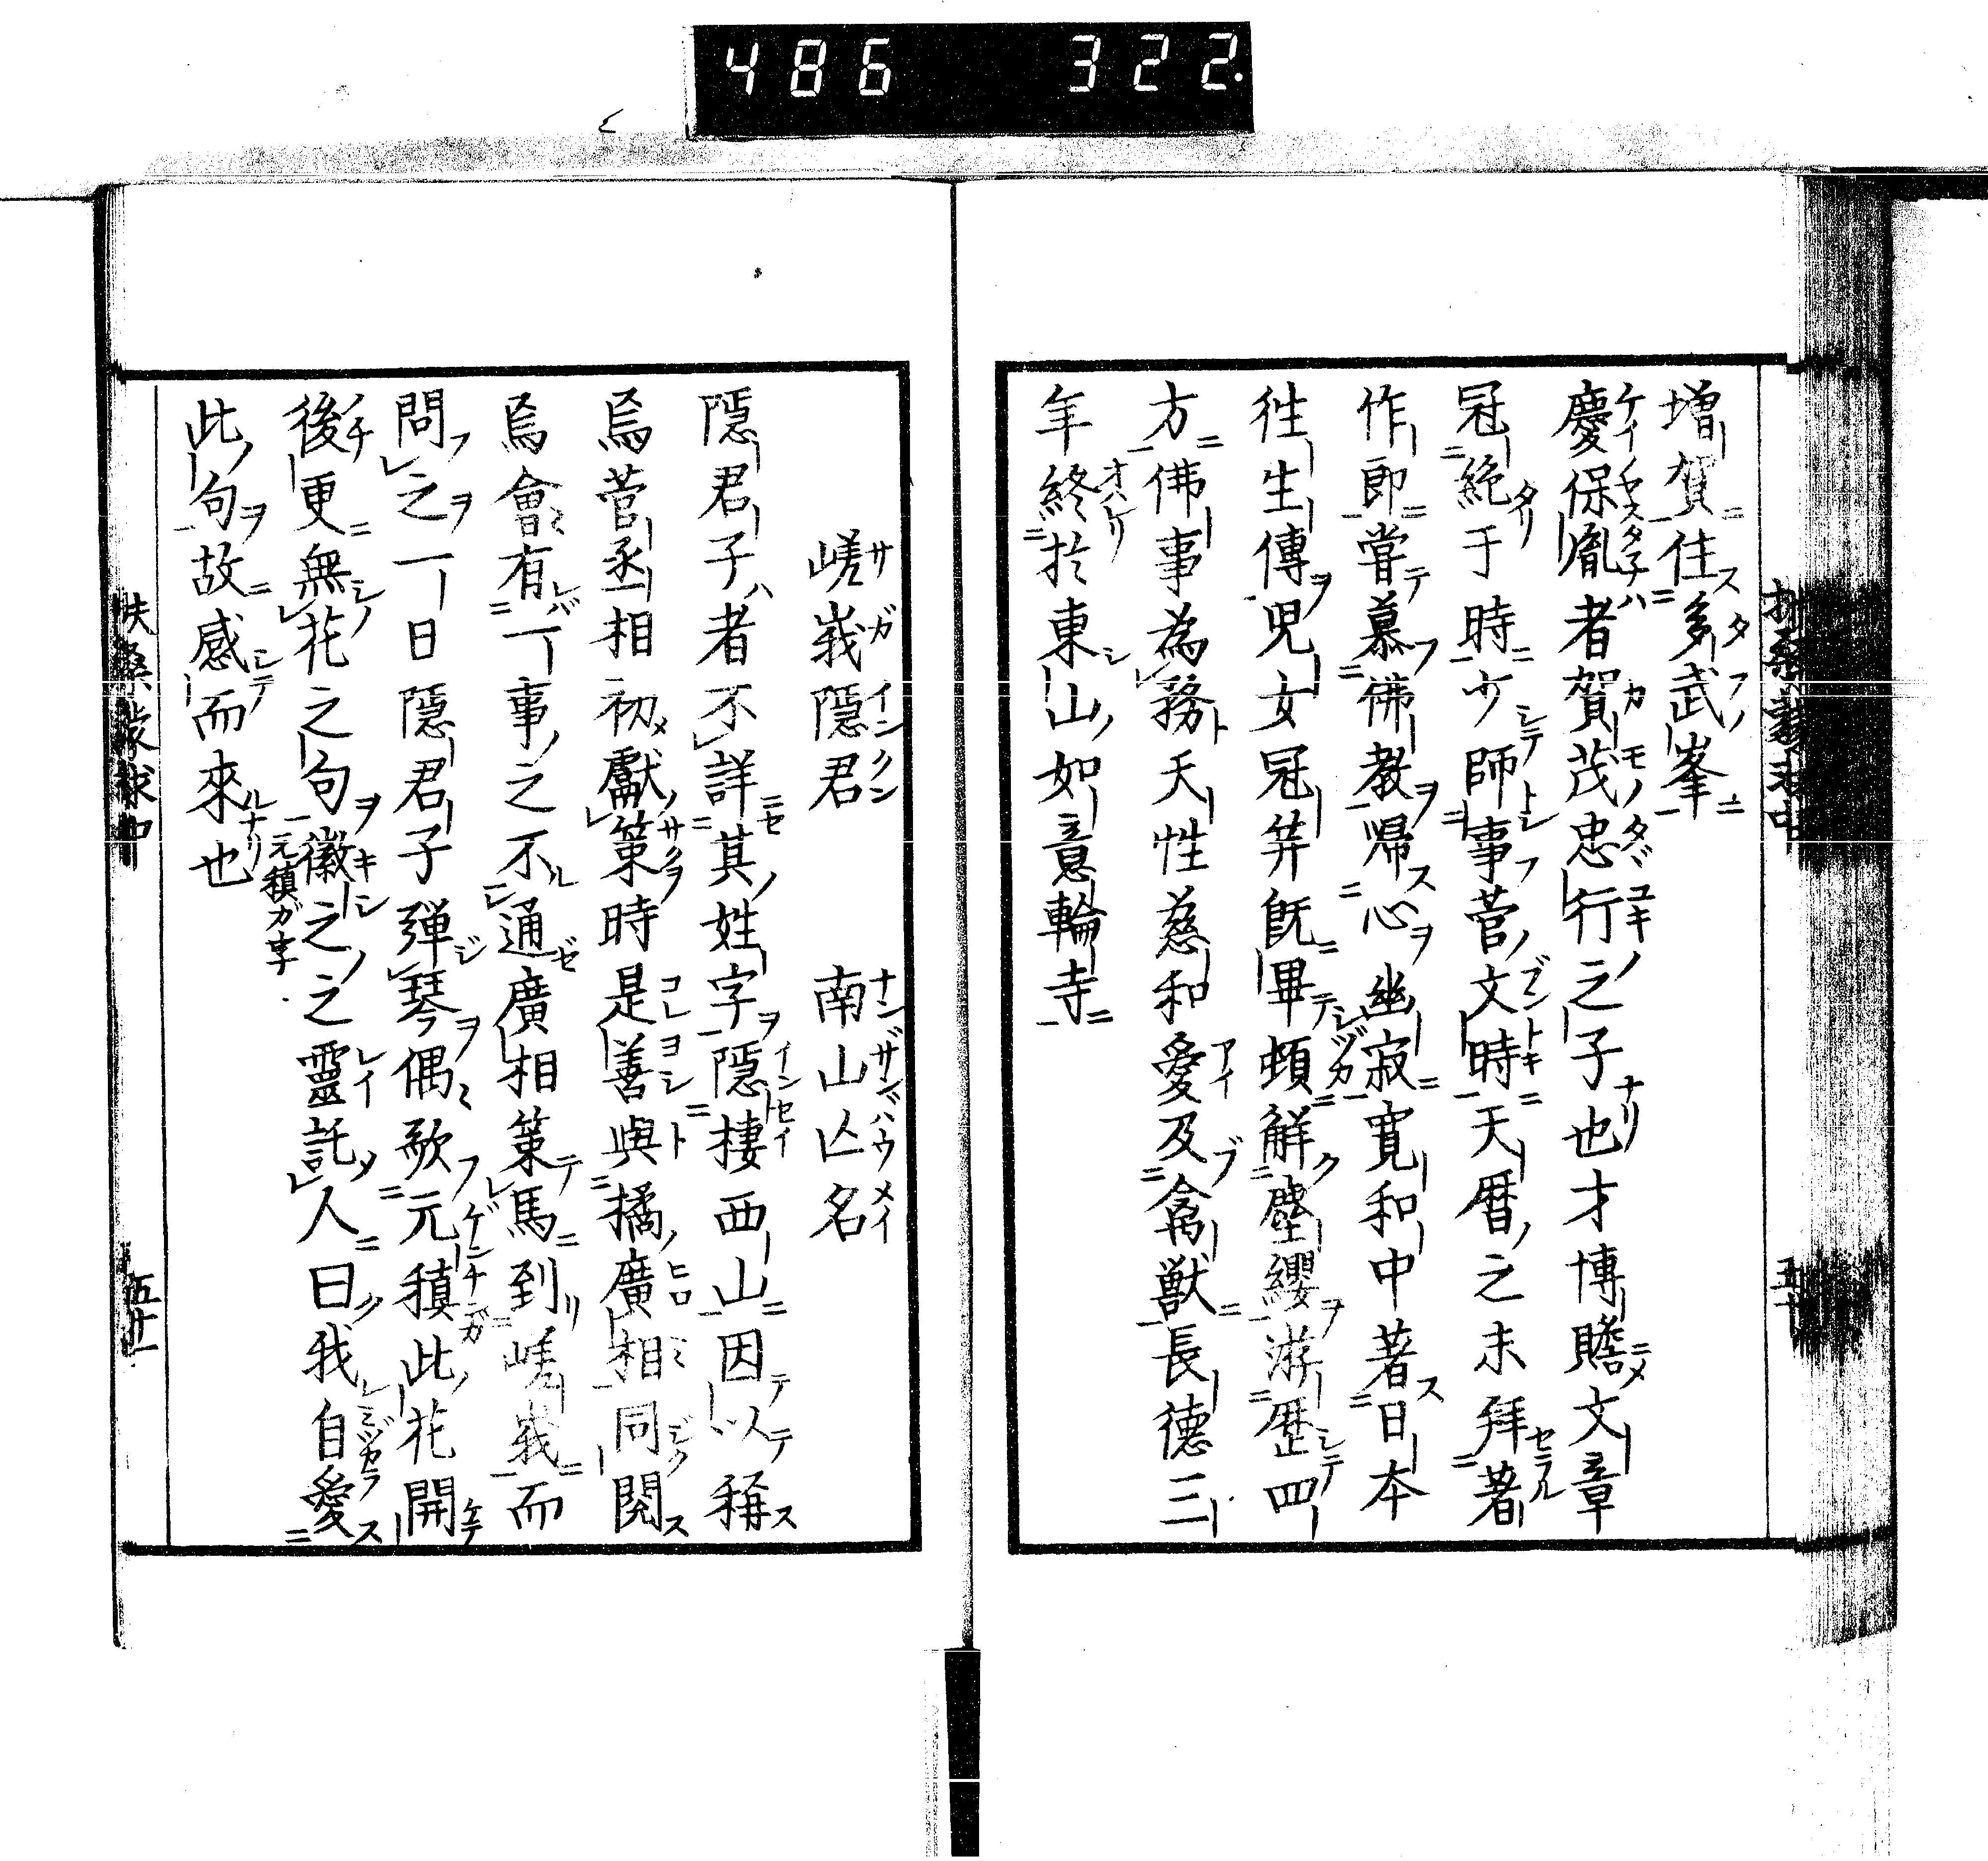 486 322.
増賀住多武峯
慶保胤者賀茂忠行之子也才博贍文章
冠絶于時少師事菅文時天暦之末拜著
作郎嘗慕佛教帰心幽寂寛和中著日本
徃生傳児女冠笄既畢頓觧塵纓游歴四
方佛事為務天性慈和愛及禽獣長德三
年終於東山如意輪寺
嵯峩隠君 南山亾名
隠君子者不詳其姓字隠棲西山因以稱
焉菅丞相初獻策時是善與橘廣相同閲
焉會有一事之不通廣相策馬到嵯峩而
問之一日隠君子弾琴偶歌元稹此花開
後更無花之句徽之之靈託人曰我自愛
元稹ガ字
此句故感而來也
扶桑蒙求中 五十一